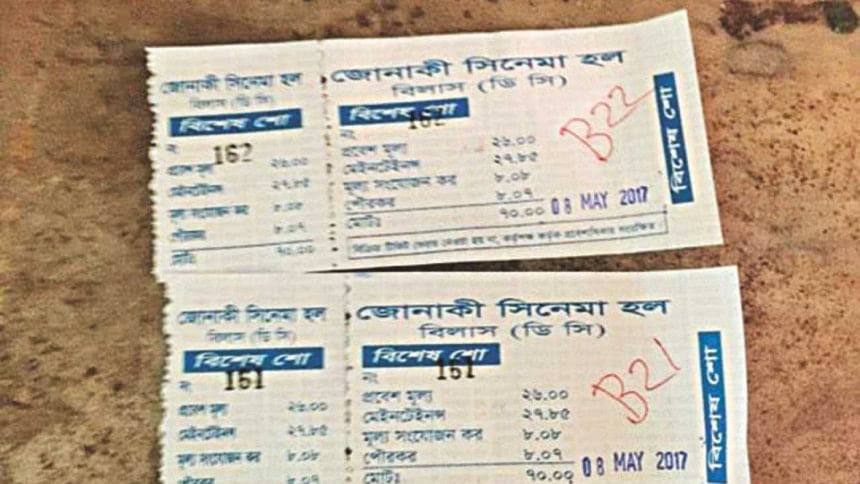 জোনাকী সিনেমা হল
বিলাস (ডি সি)
বিশেষ শো
নং 162
প্রবেশ মূল্য ২৬.০০
মেইনটেইনন্স ২৭.৮৫
মূল্য সংযোজন কর ৮.০৮
পৌরকর ৮.০৭
মোট: ৭০.০০
জোনাকী সিনেমা হল
বিলাস (ডি সি)
বিশেষ শো
নং 162
প্রবেশ মূল্য ২৬.০০
মেইনটেইনন্স ২৭.৮৫
মূল্য সংযোজন কর ৮.০৮
পৌরকর ৮.০৭
মোট: ৭০.০০
08 MAY 2017
B22
বিশেষ শো
বিক্রিত টিকিট ফেরত নেওয়া হয় না, কর্তৃপক্ষ কর্তৃক প্রবেশাধিকার সংরক্ষিত।
জোনাকী সিনেমা হল
বিলাস (ডি সি)
বিশেষ শো
নং 161
প্রবেশ মূল্য ২৬.০০
মেইনটেইনন্স ২৭.৮৫
মূল্য সংযোজন কর ৮.০৮
পৌরকর ৮.০৭
জোনাকী সিনেমা হল
বিলাস (ডি সি)
বিশেষ শো
নং 161
প্রবেশ মূল্য ২৬.০০
মেইনটেইনন্স ২৭.৮৫
মূল্য সংযোজন কর ৮.০৮
পৌরকর ৮.০৭
মোট: ৭০.০০
08 MAY 2017
B21
বিশেষ শো